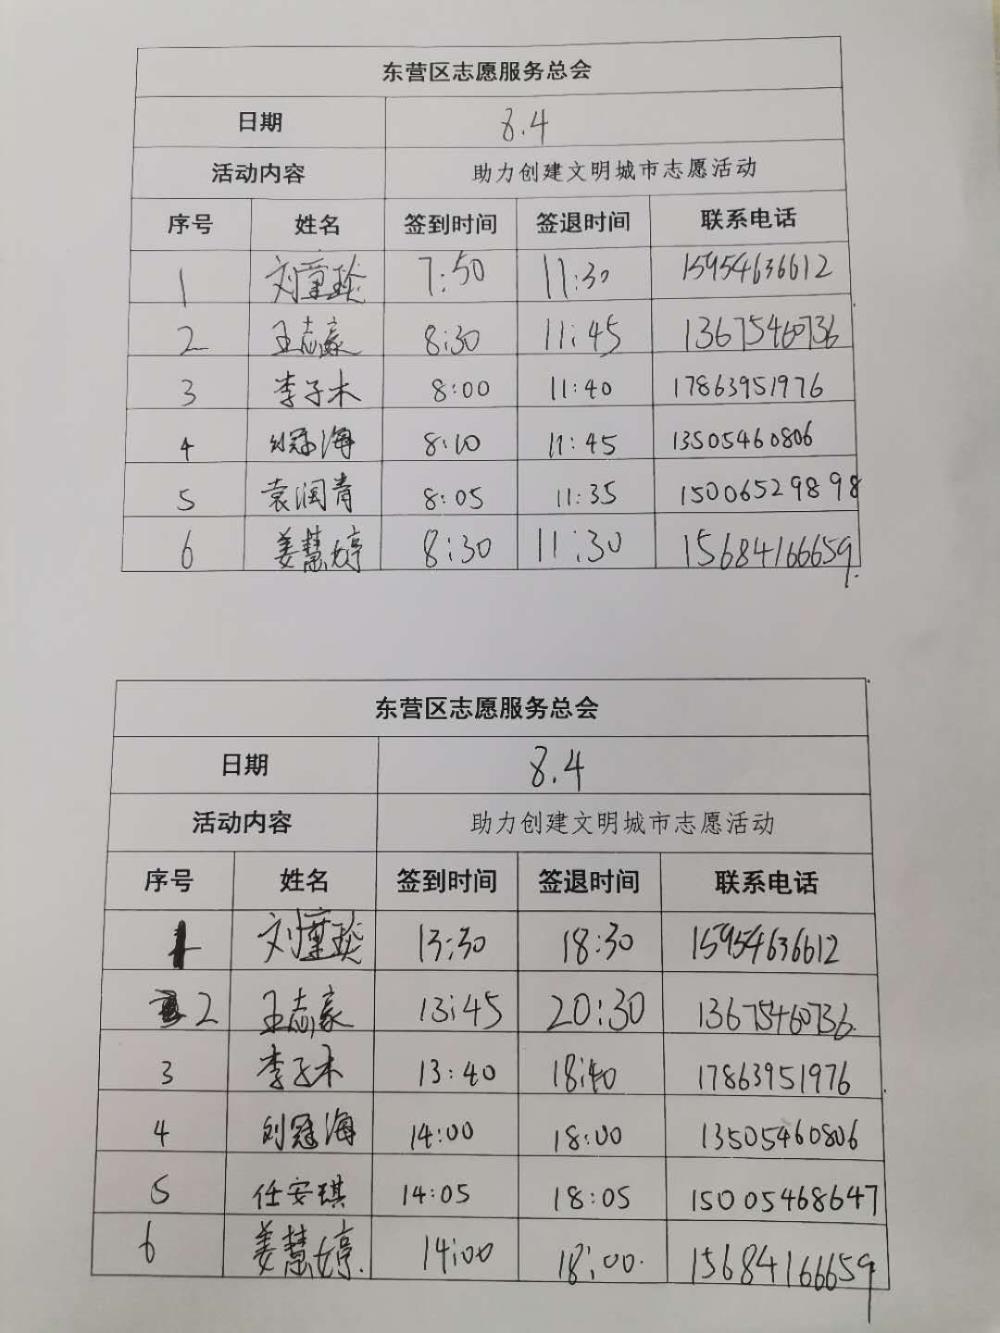 东营区志愿服务总会
日期 8.4
活动内容 助力创建文明城市志愿活动
序号 姓名 签到时间 签退时间 联系电话
1 刘童琰 7:50 11:30 15954636612
2 王志豪 8:30 11:45 13675460736
3 李子木 8:00 11:40 17863951976
4 刘冠海 8:10 11:45 13505460806
5 袁润青 8:05 11:35 15006529898
6 姜慧婷 8:30 11:30 15684166659
东营区志愿服务总会
日期 8.4
活动内容 助力创建文明城市志愿活动
序号 姓名 签到时间 签退时间 联系电话
1 刘童琰 13:30 18:30 15954636612
2 王志豪 13:45 20:30 13675460736
3 李子木 13:40 18:40 17863951976
4 刘冠海 14:00 18:00 13505460806
5 任安琪 14:05 18:05 15005468647
6 姜慧婷. 14:00 18:00. 15684166659